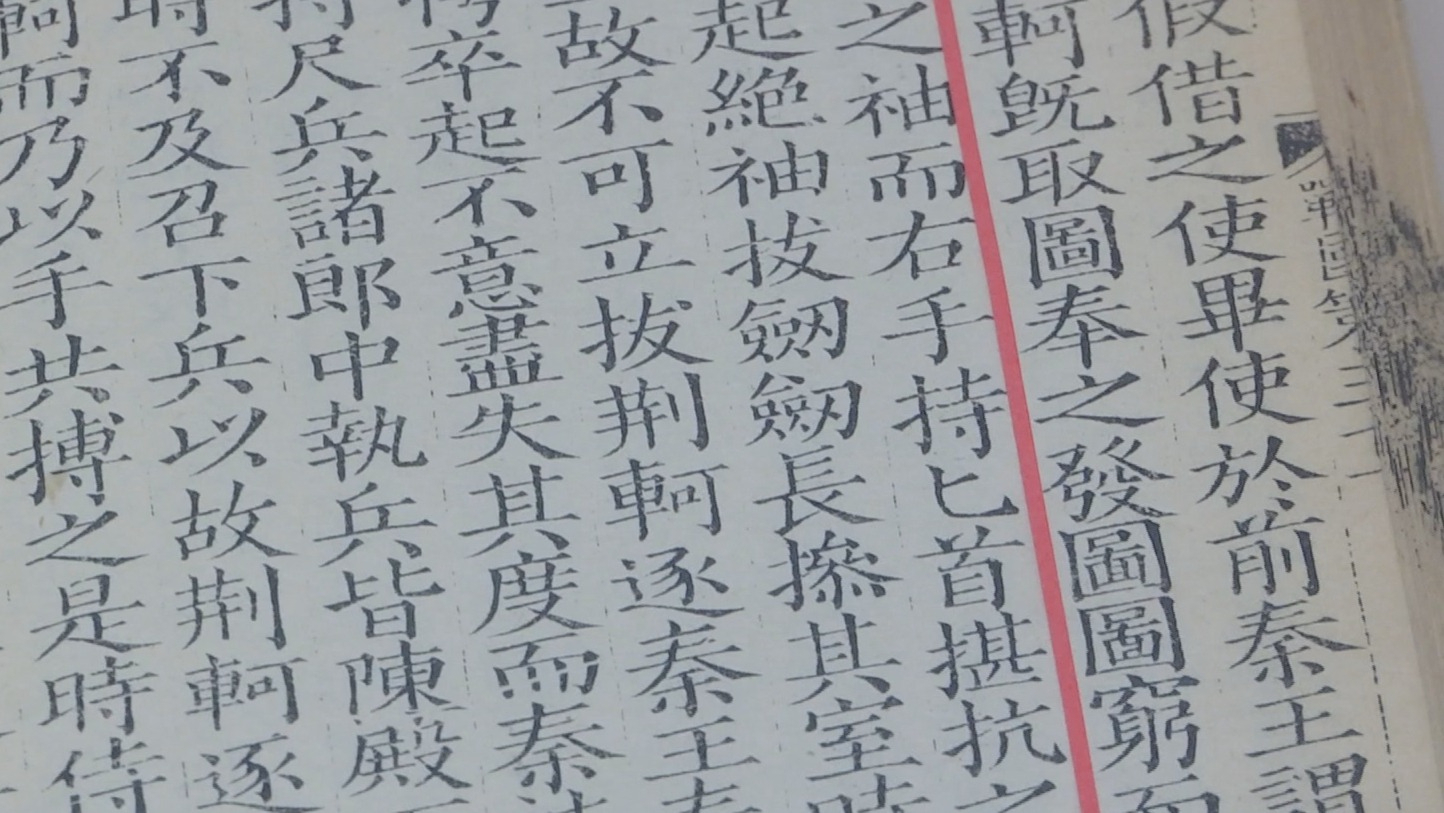 假借之使畢使於前秦王謂
軻既取圖奉之發圖圖窮而
之袖而右手持匕首揕抗之
起絶袖拔劒劒長摻其室時
故不可立拔荆軻逐秦王
卒起不意盡失其度而秦
尺兵諸郎中執兵皆陳殿
時不及召下兵以故荆軻逐
軻而乃以手共搏之是時侍
戰國